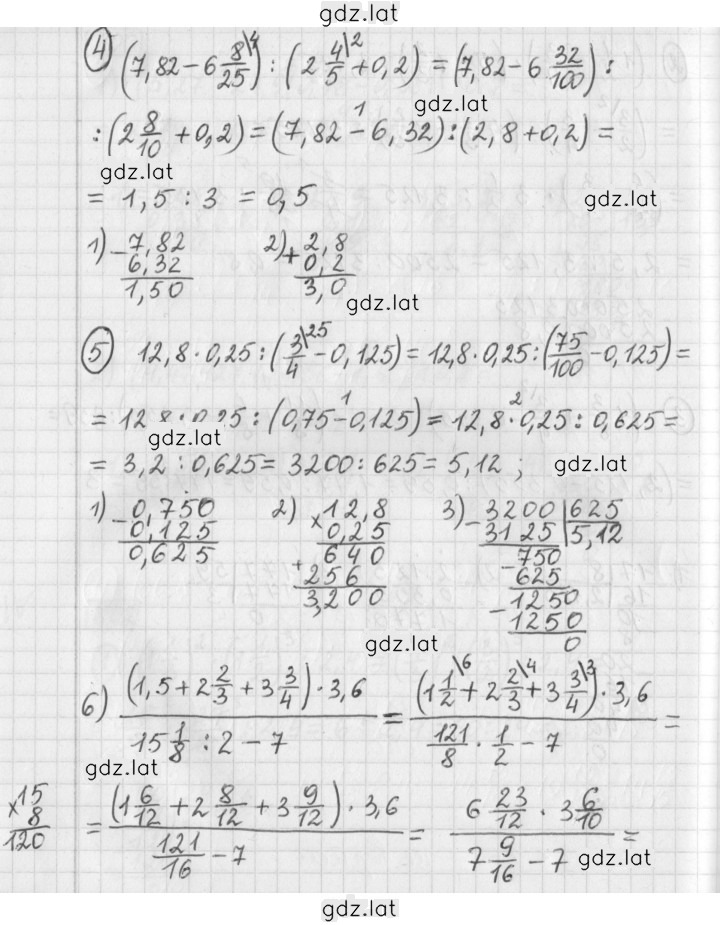 gdz.lat
4) (7,82 − 6 8/25\4) : (2 4/5\2 + 0,2) = (7,82 − 6 32/100) :
gdz.lat
: (2 8/10 + 0,2) = (7,82 −1 6,32) : (2,8 + 0,2) =
gdz.lat
= 1,5 : 3 = 0,5 gdz.lat
1) − 7,82 2) + 2,8
6,32 0,2
1,50 3,0
gdz.lat
5) 12,8 · 0,25 : (3/4\25 − 0,125) = 12,8 · 0,25 : (75/100 − 0,125) =
= 12,8 · 0,25 : (0,75 −1 0,125) = 12,8 ·2 0,25 : 0,625 =
gdz.lat
= 3,2 : 0,625 = 3200 : 625 = 5,12 ; gdz.lat
1) − 0,750 2) × 12,8 3) − 3200 | 625
0,125 0,25 3125 | 5,12
0,625 640 − 750
+ 256 625
3,200 − 1250
1250
0
gdz.lat
6) (1,5 + 2 2/3 + 3 3/4) · 3,6 / 15 1/8 : 2 − 7 = (1 1/2\6 + 2 2/3\4 + 3 3/4\3) · 3,6 / 121/8 · 1/2 − 7 =
gdz.lat
× 15
8
120
= (1 6/12 + 2 8/12 + 3 9/12) · 3,6 / 121/16 − 7 = 6 23/12 · 3 6/10 / 7 9/16 − 7 =
gdz.lat
gdz.lat